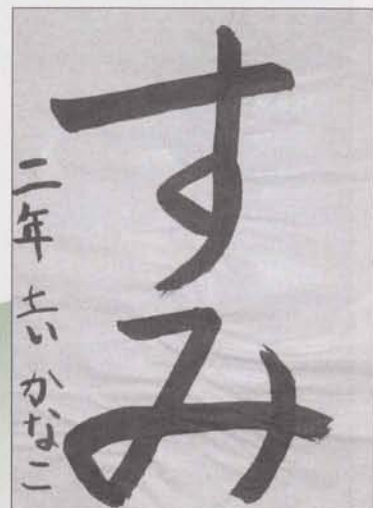 すみ
二年 土い かなこ